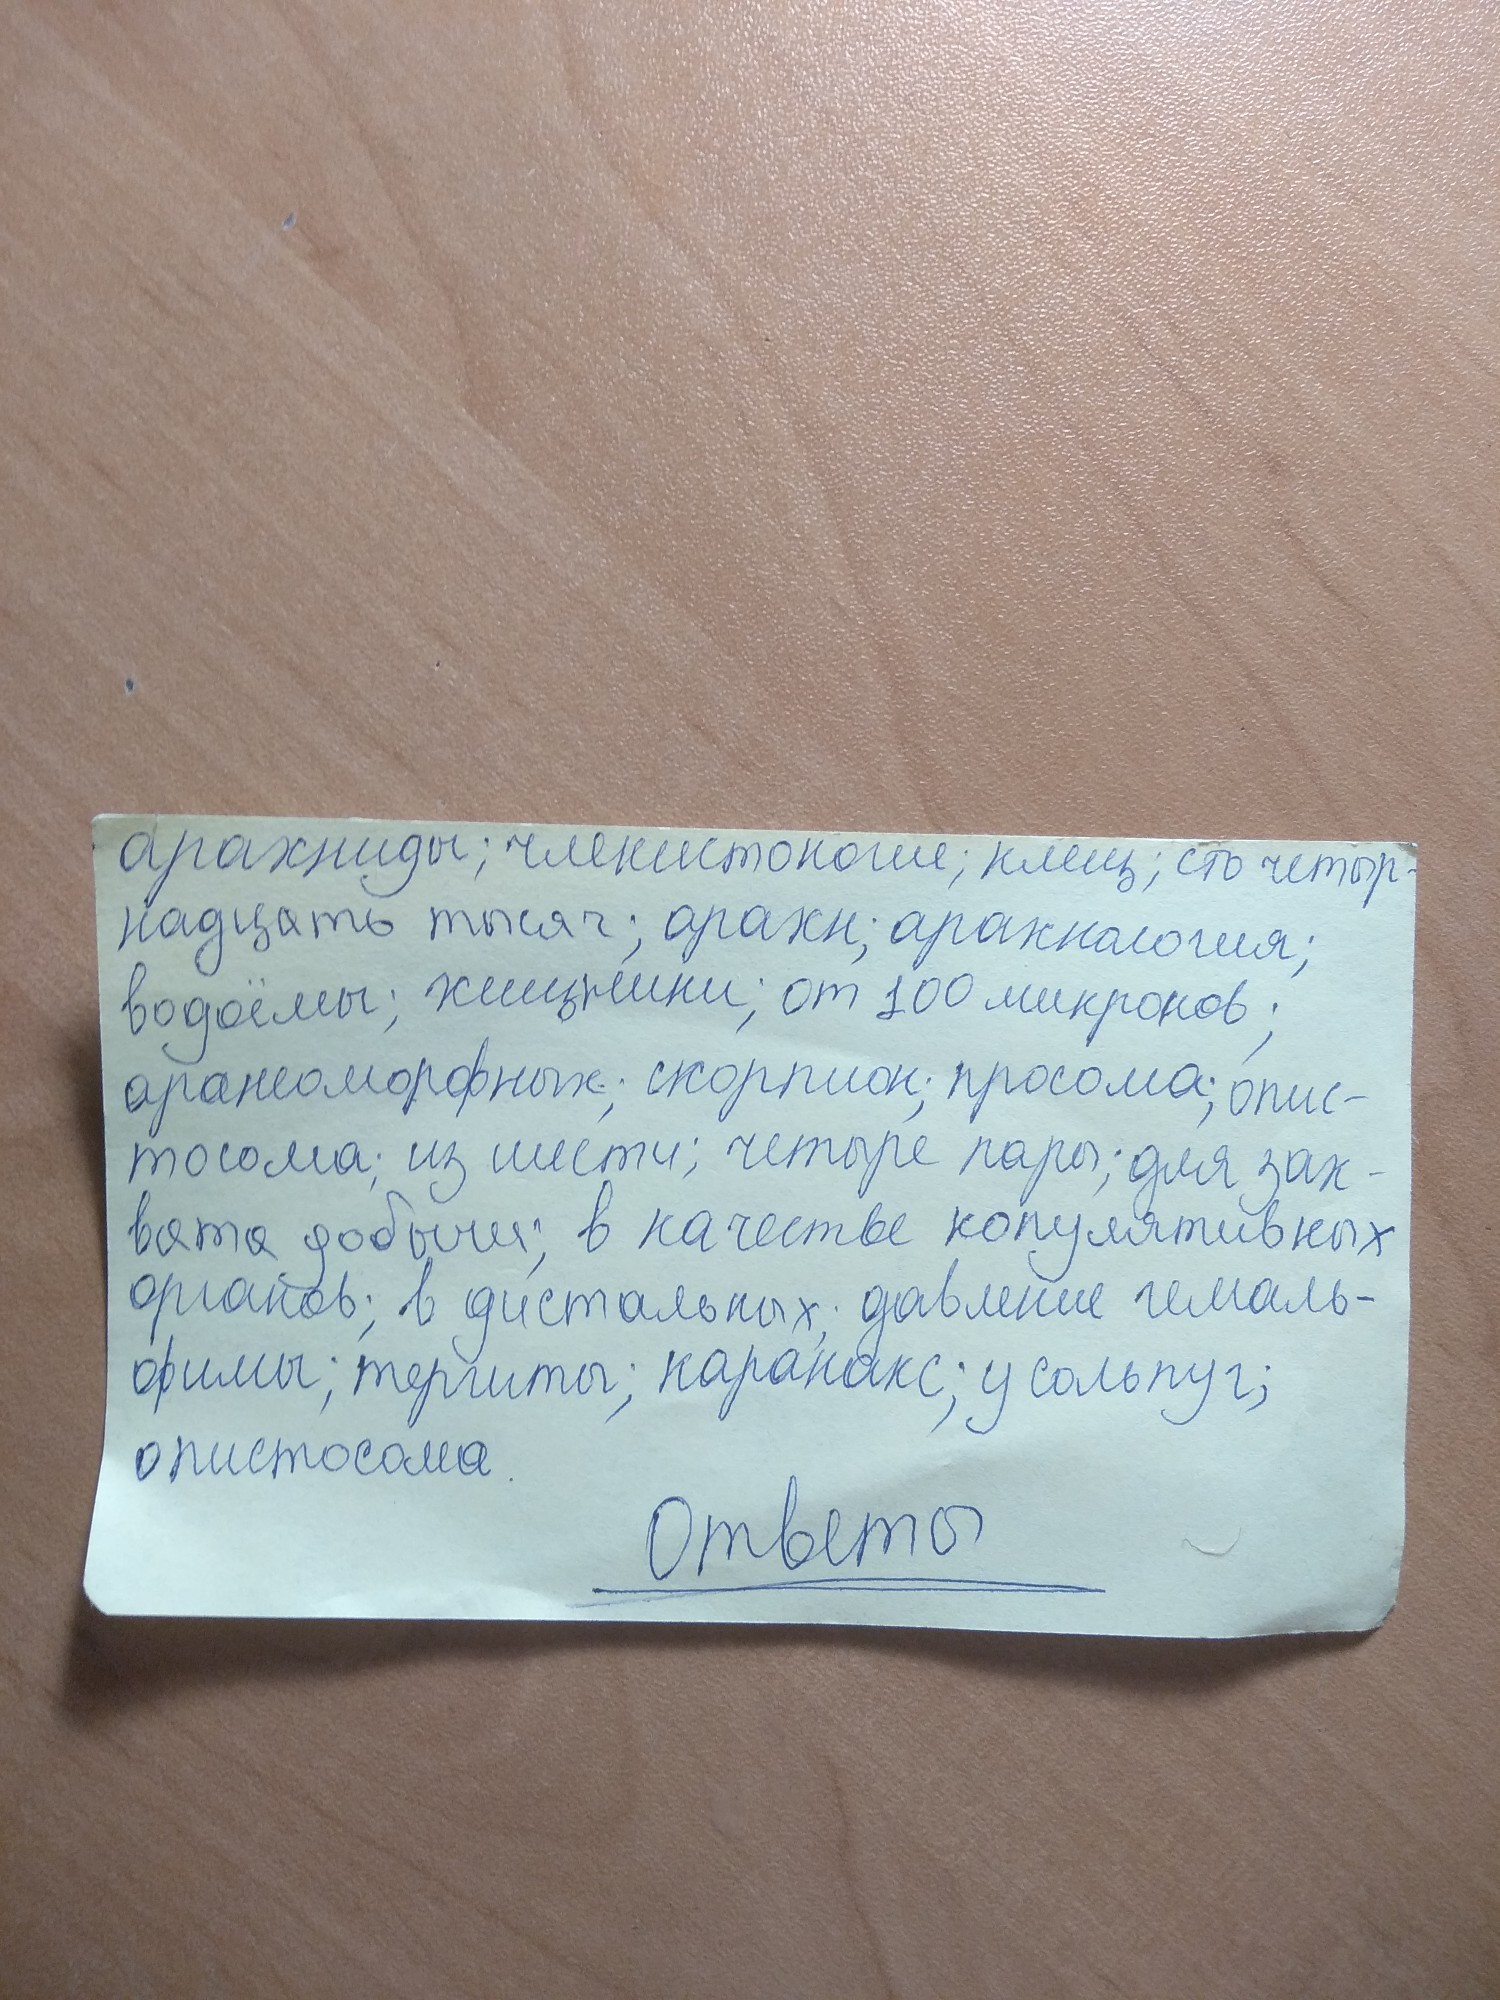 арахниды; членистоногие; клещ; сто четыр-
надцать тысяч; арахн; арахнология;
водоёмы; хищники; от 100 микронов;
аранеоморфных; скорпион; просома; опис-
тосома; из шести; четыре пары; для зах-
вата добычи; в качестве копулятивных
органов; в дистальных; давление гемаль-
фимы; тергиты; карапакс; у сольпуг;
опистосома.
Ответы